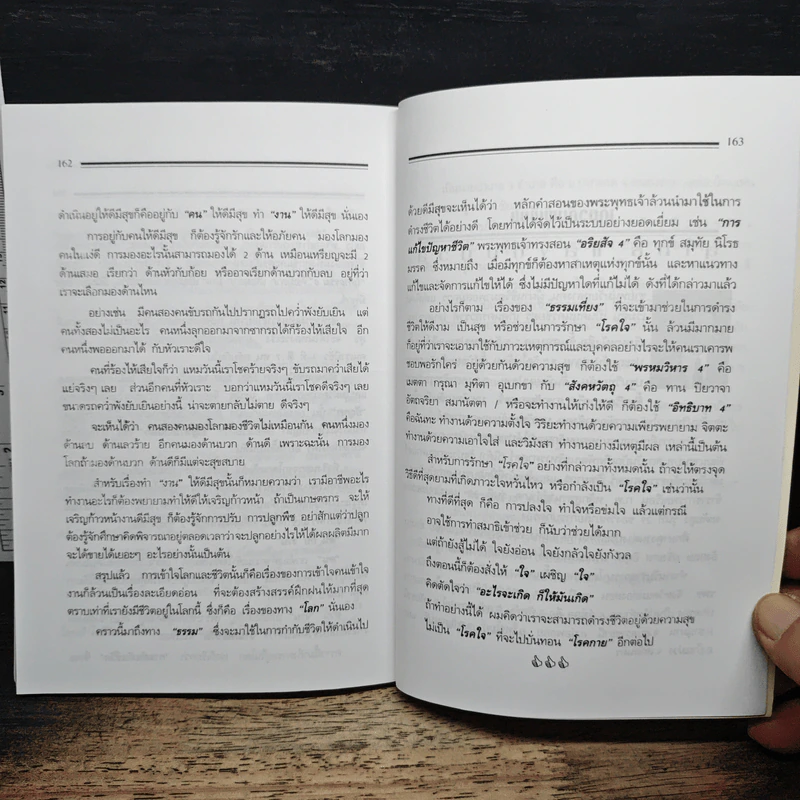 162
ดำเนินอยู่ให้ดีมีสุขก็คืออยู่กับ “คน” ให้ดีมีสุข ทำ “งาน” ให้ดีมีสุข นั่นเอง
การอยู่กับคนให้ดีมีสุข ก็ต้องรู้จักรักและให้อภัยคน มองโลกมอง
คนในแง่ดี การมองอะไรนั้นสามารถมองได้ 2 ด้าน เหมือนเหรียญจะมี 2
ด้านเสมอ เรียกว่า ด้านหัวกับก้อย หรืออาจเรียกด้านบวกกับลบ อยู่ที่ว่า
เราจะเลือกมองด้านไหน
อย่างเช่น มีคนสองคนขับรถกันไปปรากฏรถไปคว่ำพังยับเยิน แต่
คนทั้งสองไม่เป็นอะไร คนหนึ่งลุกออกมาจากซากรถได้ก็ร้องไห้เสียใจ อีก
คนหนึ่งพอออกมาได้ กับหัวเราะดีใจ
คนที่ร้องไห้เสียใจก็ว่า แหมวันนี้เราโชคร้ายจริงๆ ขับรถมาคว่ำเสียได้
แย่จริงๆ เลย ส่วนอีกคนที่หัวเราะ บอกว่าแหมวันนี้เราโชคดีจริงๆ เลย
ขนาดรถคว่ำพังยับเยินอย่างนี้ น่าจะตายกลับไม่ตาย ดีจริงๆ
จะเห็นได้ว่า คนสองคนมองโลกมองชีวิตไม่เหมือนกัน คนหนึ่งมอง
ด้านลบ ด้านเลวร้าย อีกคนมองด้านบวก ด้านดี เพราะฉะนั้น การมอง
โลกถ้ามองด้านบวก ด้านดีก็มีแต่จะสุขสบาย
สำหรับเรื่องทำ “งาน” ให้ดีมีสุขนั้นก็หมายความว่า เรามีอาชีพอะไร
ทำงานอะไรก็ต้องพยายามทำให้ดีให้เจริญก้าวหน้า ถ้าเป็นเกษตรกร จะให้
เจริญก้าวหน้างานดีมีสุข ก็ต้องรู้จักการปรับ การปลูกพืช อย่าสักแต่ว่าปลูก
ต้องรู้จักศึกษาคิดพิจารณาอยู่ตลอดเวลาว่าจะปลูกอย่างไรให้ได้ผลผลิตมีมาก
จะได้ขายได้เยอะๆ อะไรอย่างนั้นเป็นต้น
สรุปแล้ว การเข้าใจโลกและชีวิตนั้นก็คือเรื่องของการเข้าใจคนเข้าใจ
งานก็ล้วนเป็นเรื่องละเอียดอ่อน ที่จะต้องสร้างสรรค์ฝึกฝนให้มากที่สุด
ตราบเท่าที่เรายังมีชีวิตอยู่ในโลกนี้ ซึ่งก็คือ เรื่องของทาง “โลก” นั่นเอง
คราวนี้มาถึงทาง “ธรรม” ซึ่งจะมาใช้ในการกำกับชีวิตให้ดำเนินไป
163
ด้วยดีมีสุขจะเห็นได้ว่า หลักคำสอนของพระพุทธเจ้าล้วนนำมาใช้ในการ
ดำรงชีวิตได้อย่างดี โดยท่านได้จัดไว้เป็นระบบอย่างยอดเยี่ยม เช่น “การ
แก้ไขปัญหาชีวิต” พระพุทธเจ้าทรงสอน “อริยสัจ 4” คือ ทุกข์ สมุทัย นิโรธ
มรรค ซึ่งหมายถึง เมื่อมีทุกข์ก็ต้องหาสาเหตุแห่งทุกข์นั้น และหาแนวทาง
แก้ไขและจัดการแก้ไขให้ได้ ซึ่งไม่มีปัญหาใดที่แก้ไม่ได้ ดังที่ได้กล่าวมาแล้ว
อย่างไรก็ตาม เรื่องของ “ธรรมเที่ยง” ที่จะเข้ามาช่วยในการดำรง
ชีวิตให้ดีงาม เป็นสุข หรือช่วยในการรักษา “โรคใจ” นั้น ล้วนมีมากมาย
ก็อยู่ที่ว่าเราจะเอามาใช้กับภาวะเหตุการณ์และบุคคลอย่างไรจะให้คนเราเคารพ
ชอบพอรักใคร่ อยู่ด้วยกันด้วยความสุข ก็ต้องใช้ “พรหมวิหาร 4” คือ
เมตตา กรุณา มุทิตา อุเบกขา กับ “สังคหวัตถุ 4” คือ ทาน ปิยวาจา
อัตถจริยา สมานัตตา / หรือจะทำงานให้เก่งให้ดี ก็ต้องใช้ “อิทธิบาท 4”
คือฉันทะ ทำงานด้วยความตั้งใจ วิริยะทำงานด้วยความเพียรพยายาม จิตตะ
ทำงานด้วยความเอาใจใส่ และวิมังสา ทำงานอย่างมีเหตุมีผล เหล่านี้เป็นต้น
สำหรับการรักษา “โรคใจ” อย่างที่กล่าวมาทั้งหมดนั้น ถ้าจะให้ตรงจุด
วิธีดีที่สุดยามที่เกิดภาวะใจหวั่นไหว หรือกำลังเป็น “โรคใจ” เช่นว่านั้น
ทางที่ดีที่สุด ก็คือ การปลงใจ ทำใจหรือข่มใจ แล้วแต่กรณี
อาจใช้การทำสมาธิเข้าช่วย ก็นับว่าช่วยได้มาก
แต่ถ้ายังสู้ไม่ได้ ใจยังอ่อน ใจยังกลัวใจยังกังวล
ถึงตอนนี้ก็ต้องสั่งให้ “ใจ” เผชิญ “ใจ”
คิดตัดใจว่า “อะไรจะเกิด ก็ให้มันเกิด”
ถ้าทำอย่างนี้ได้ ผมคิดว่าเราจะสามารถดำรงชีวิตอยู่ด้วยความสุข
ไม่เป็น “โรคใจ” ที่จะไปบั่นทอน “โรคกาย” อีกต่อไป